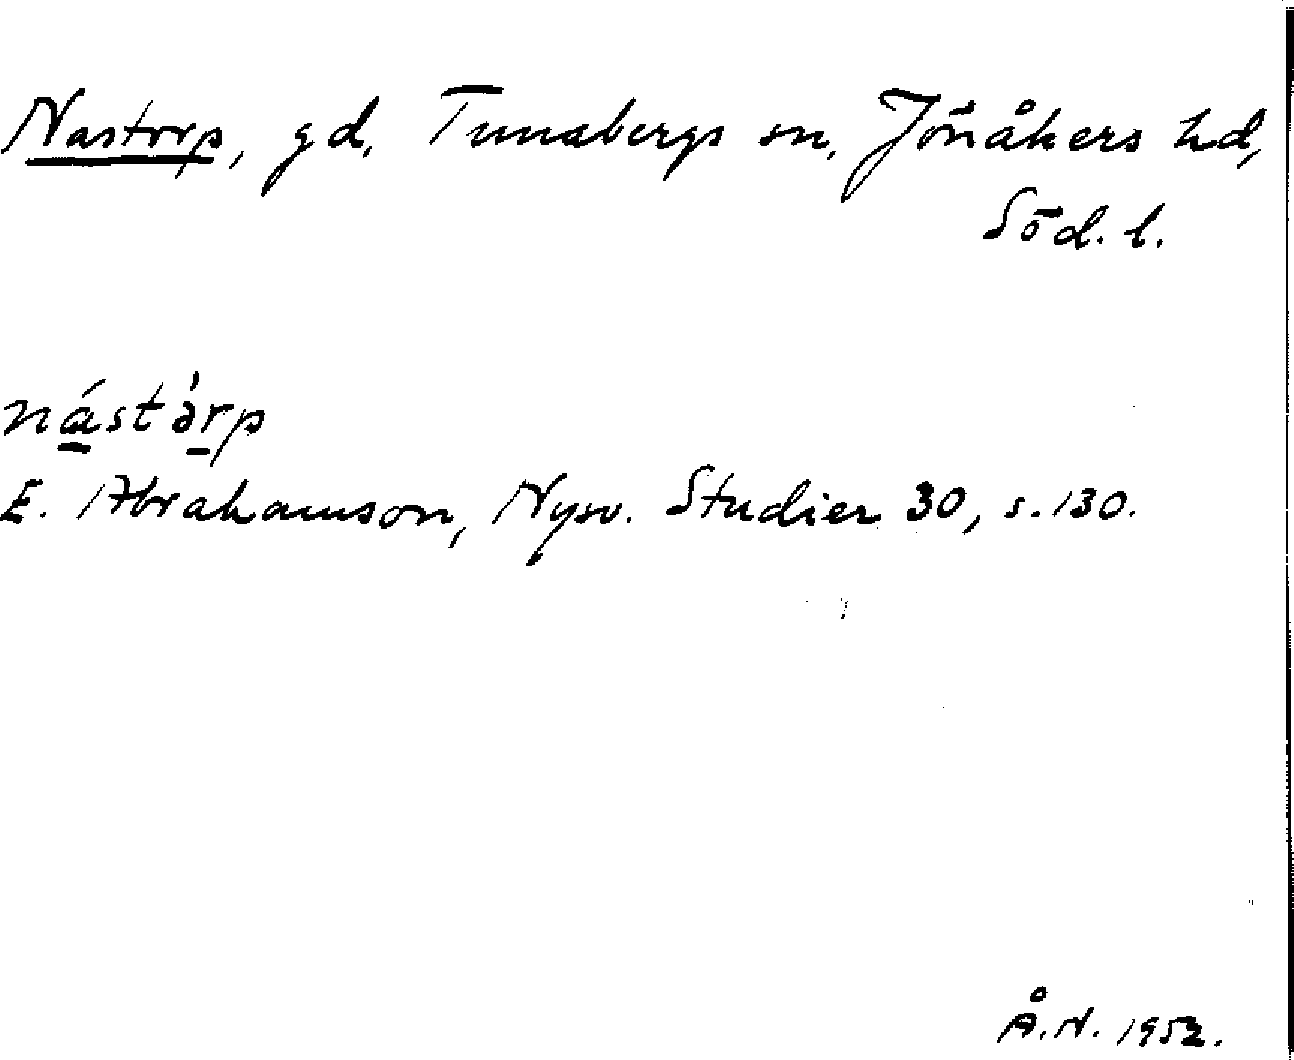 Nastorp, gd, Tunabergs sn, Jönåkers hd,
Söd. l.
nástə̀rp
E. Abrahamson, Nysv. Studier 30, s. 130.
Å. N. 1952.